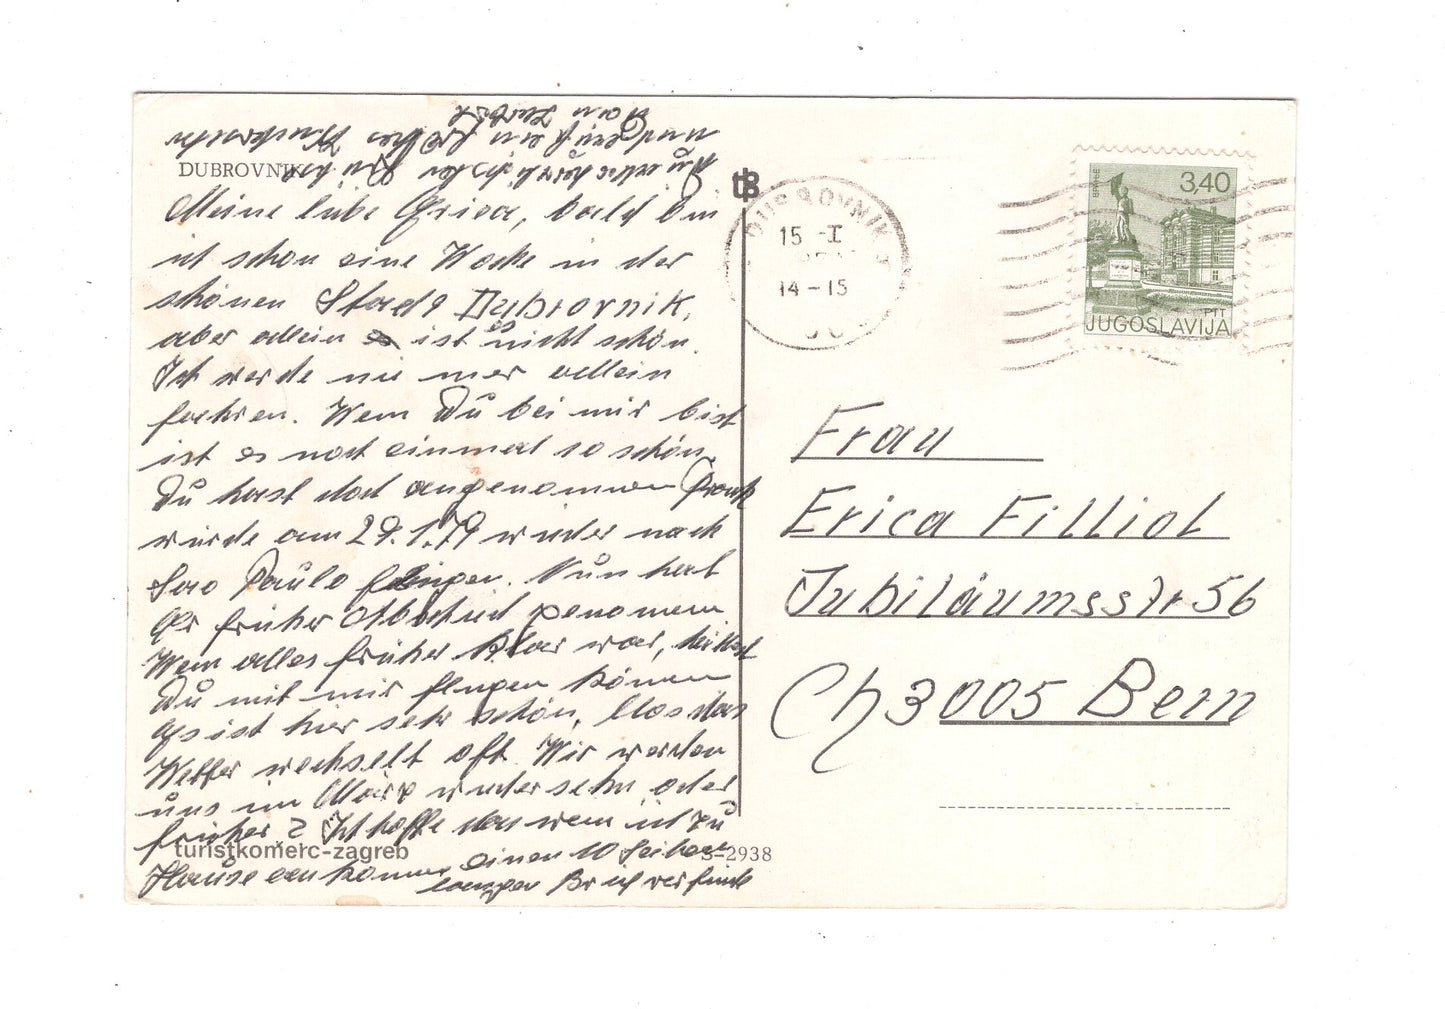 DUBROVNIK
Meine liebe Erica, bald bin
ich schon eine Woche in der
schönen Stadt Dubrovnik,
aber allein ist es nicht schön.
Ich werde nie mer allein
fahren. Wenn Du bei mir bist
ist es noch einmal so schön.
Du hast doch angenommen Frank
würde am 29.1.79 wieder nach
Sao Paulo fliegen. Nun hat
Er früher Abschied genomen
Wenn alles früher klar war, hättest
Du mit mir flugen können
Es ist hier sehr schön, blos das
Wetter wechselt oft. Wir werden
uns im März wiedersehn oder
früher? Ich hoffe das wenn ich zu
Hause ankomme einen 10 Seiten
langen Brief vorfinde
und
Dein
turistkomerc-zagreb
S-2938
DUBROVNIK
15 -I
14-15
3,40
ВРАЊЕ
PTT
JUGOSLAVIJA
Frau
Erica Filliol
Jubiläumsstr 56
Ch 3005 Bern